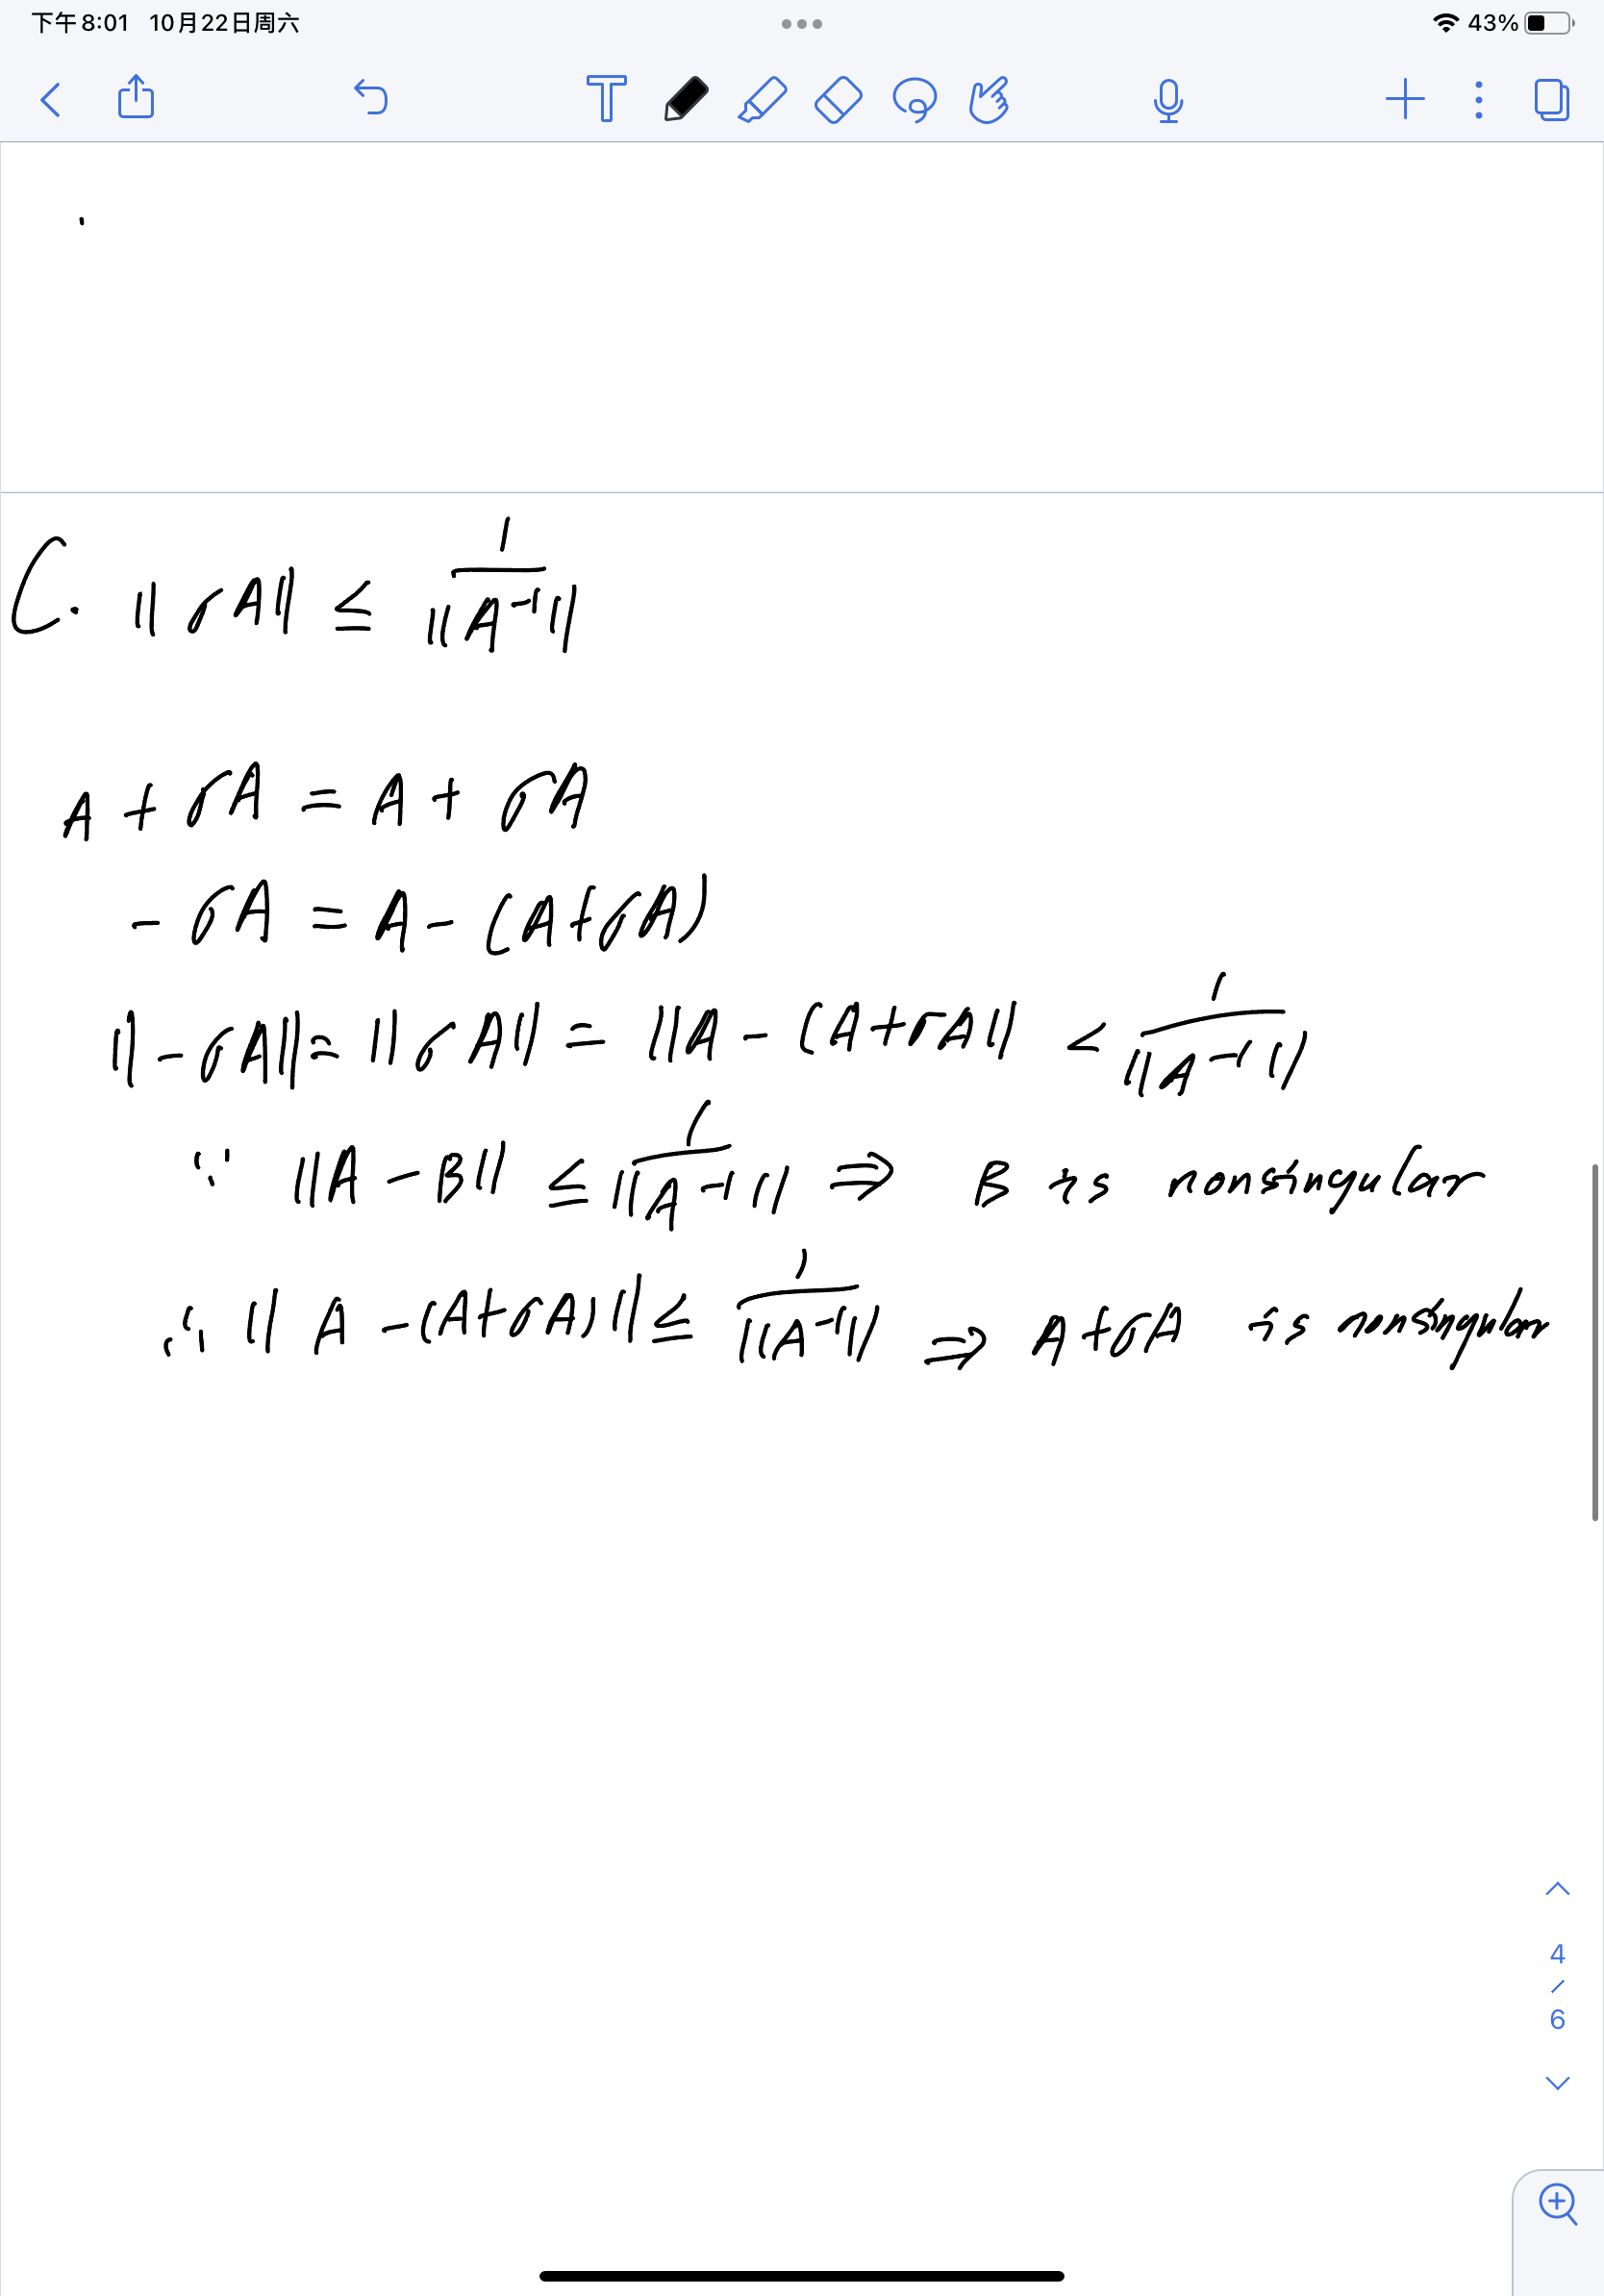 下午8:01 10月22日周六 43%
C. ||δA|| ≤ 1/||A⁻¹||
A + δA = A + δA
- δA = A - (A+δA)
||-δA|| = ||δA|| = ||A - (A+δA|| < 1/||A⁻¹||
∵ ||A - B|| ≤ 1/||A⁻¹|| ⇒ B is nonsingular
∴ || A - (A+δA)|| ≤ 1/||A⁻¹|| ⇒ A+δA is nonsingular
4
/
6